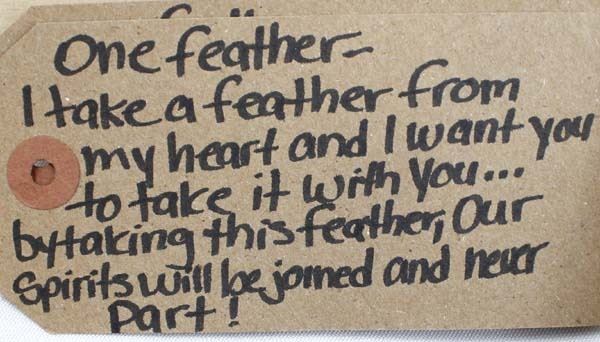 One feather-
I take a feather from
my heart and I want you
to take it with you...
by taking this feather, Our
Spirits will be joined and never
Part!